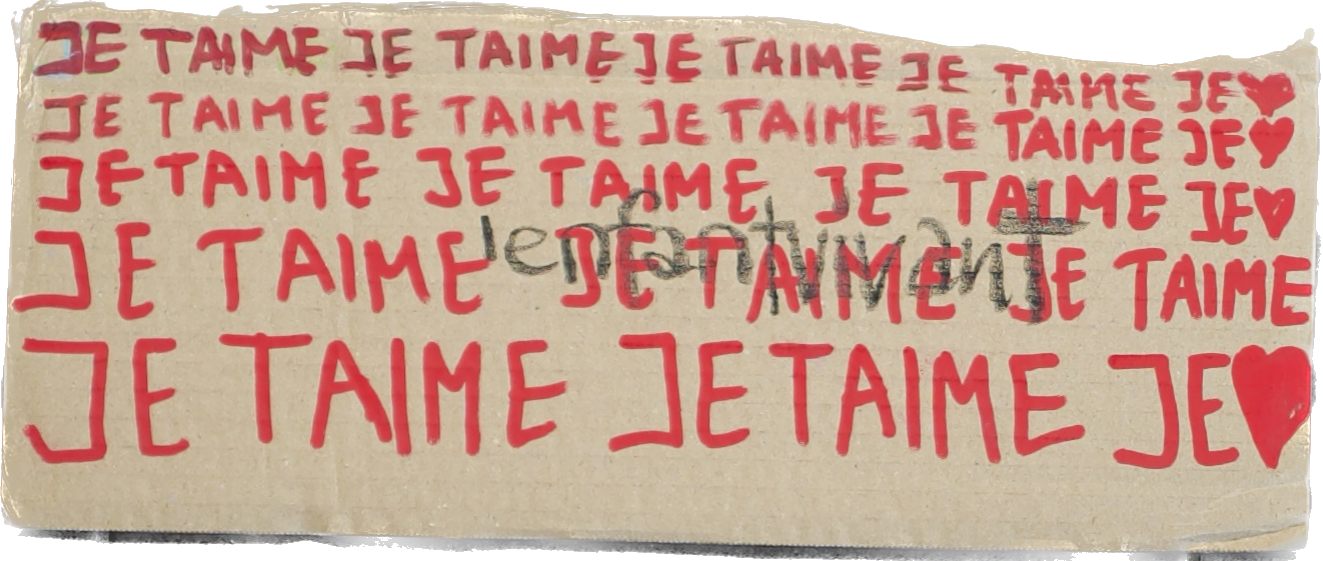 JE TAIME JE TAIME JE TAIME JE TAIME JE ♥
JE TAIME JE TAIME JE TAIME JE TAIME JE ♥
JE TAIME JE TAIME JE TAIME JE ♥
JE TAIME JE TAIME JE TAIME
lenfantvivant
JE TAIME JE TAIME JE ♥